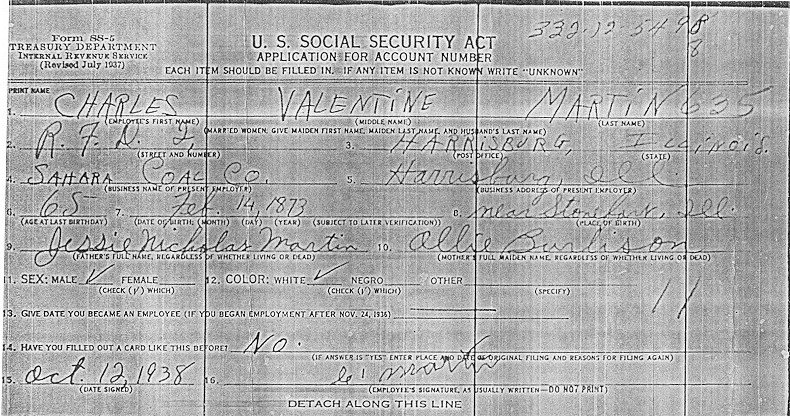 Form SS-5
TREASURY DEPARTMENT
INTERNAL REVENUE SERVICE
(Revised July 1937)
U. S. SOCIAL SECURITY ACT
APPLICATION FOR ACCOUNT NUMBER
EACH ITEM SHOULD BE FILLED IN. IF ANY ITEM IS NOT KNOWN WRITE "UNKNOWN"
332-12-5498
8
PRINT NAME
1. CHARLES VALENTINE MARTIN 635
(EMPLOYEE'S FIRST NAME) (MIDDLE NAME) (LAST NAME)
(MARRIED WOMEN: GIVE MAIDEN FIRST NAME, MAIDEN LAST NAME, AND HUSBAND'S LAST NAME)
2. R. F. D. 2, 3. HARRISBURG, ILLINOIS.
(STREET AND NUMBER) (POST OFFICE) (STATE)
4. SAHARA COAL CO. 5. Harrisburg, Ill.
(BUSINESS NAME OF PRESENT EMPLOYER) (BUSINESS ADDRESS OF PRESENT EMPLOYER)
6. 65 7. Feb. 14, 1873 8. near Stonefort, Ill.
(AGE AT LAST BIRTHDAY) (DATE OF BIRTH: (MONTH) (DAY) (YEAR) (SUBJECT TO LATER VERIFICATION)) (PLACE OF BIRTH)
9. Jessie Nicholas Martin 10. Allie Burlison
(FATHER'S FULL NAME, REGARDLESS OF WHETHER LIVING OR DEAD) (MOTHER'S FULL MAIDEN NAME, REGARDLESS OF WHETHER LIVING OR DEAD)
11. SEX: MALE ✓ FEMALE 12. COLOR: WHITE ✓ NEGRO OTHER
(CHECK (√) WHICH) (CHECK (√) WHICH) (SPECIFY)
13. GIVE DATE YOU BECAME AN EMPLOYEE (IF YOU BEGAN EMPLOYMENT AFTER NOV. 24, 1936)
11
14. HAVE YOU FILLED OUT A CARD LIKE THIS BEFORE? No.
(IF ANSWER IS "YES" ENTER PLACE AND DATE OF ORIGINAL FILING AND REASONS FOR FILING AGAIN)
15. Oct. 12, 1938 16. Martin
(DATE SIGNED) (EMPLOYEE'S SIGNATURE, AS USUALLY WRITTEN—DO NOT PRINT)
DETACH ALONG THIS LINE